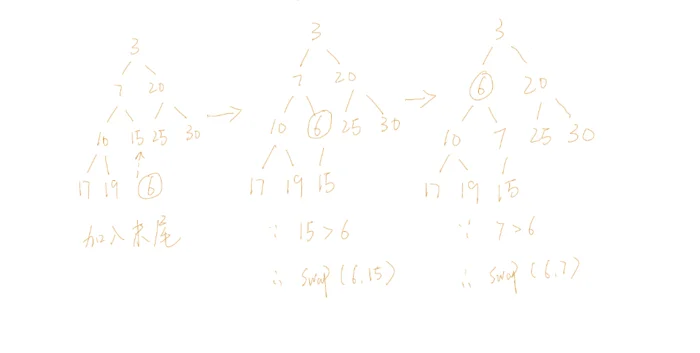 3
7 20
10 15 25 30
17 19 6
加入末尾
3
7 20
10 6 25 30
17 19 15
∵ 15>6
∴ swap(6.15)
3
6 20
10 7 25 30
17 19 15
∵ 7>6
∴ swap(6.7)